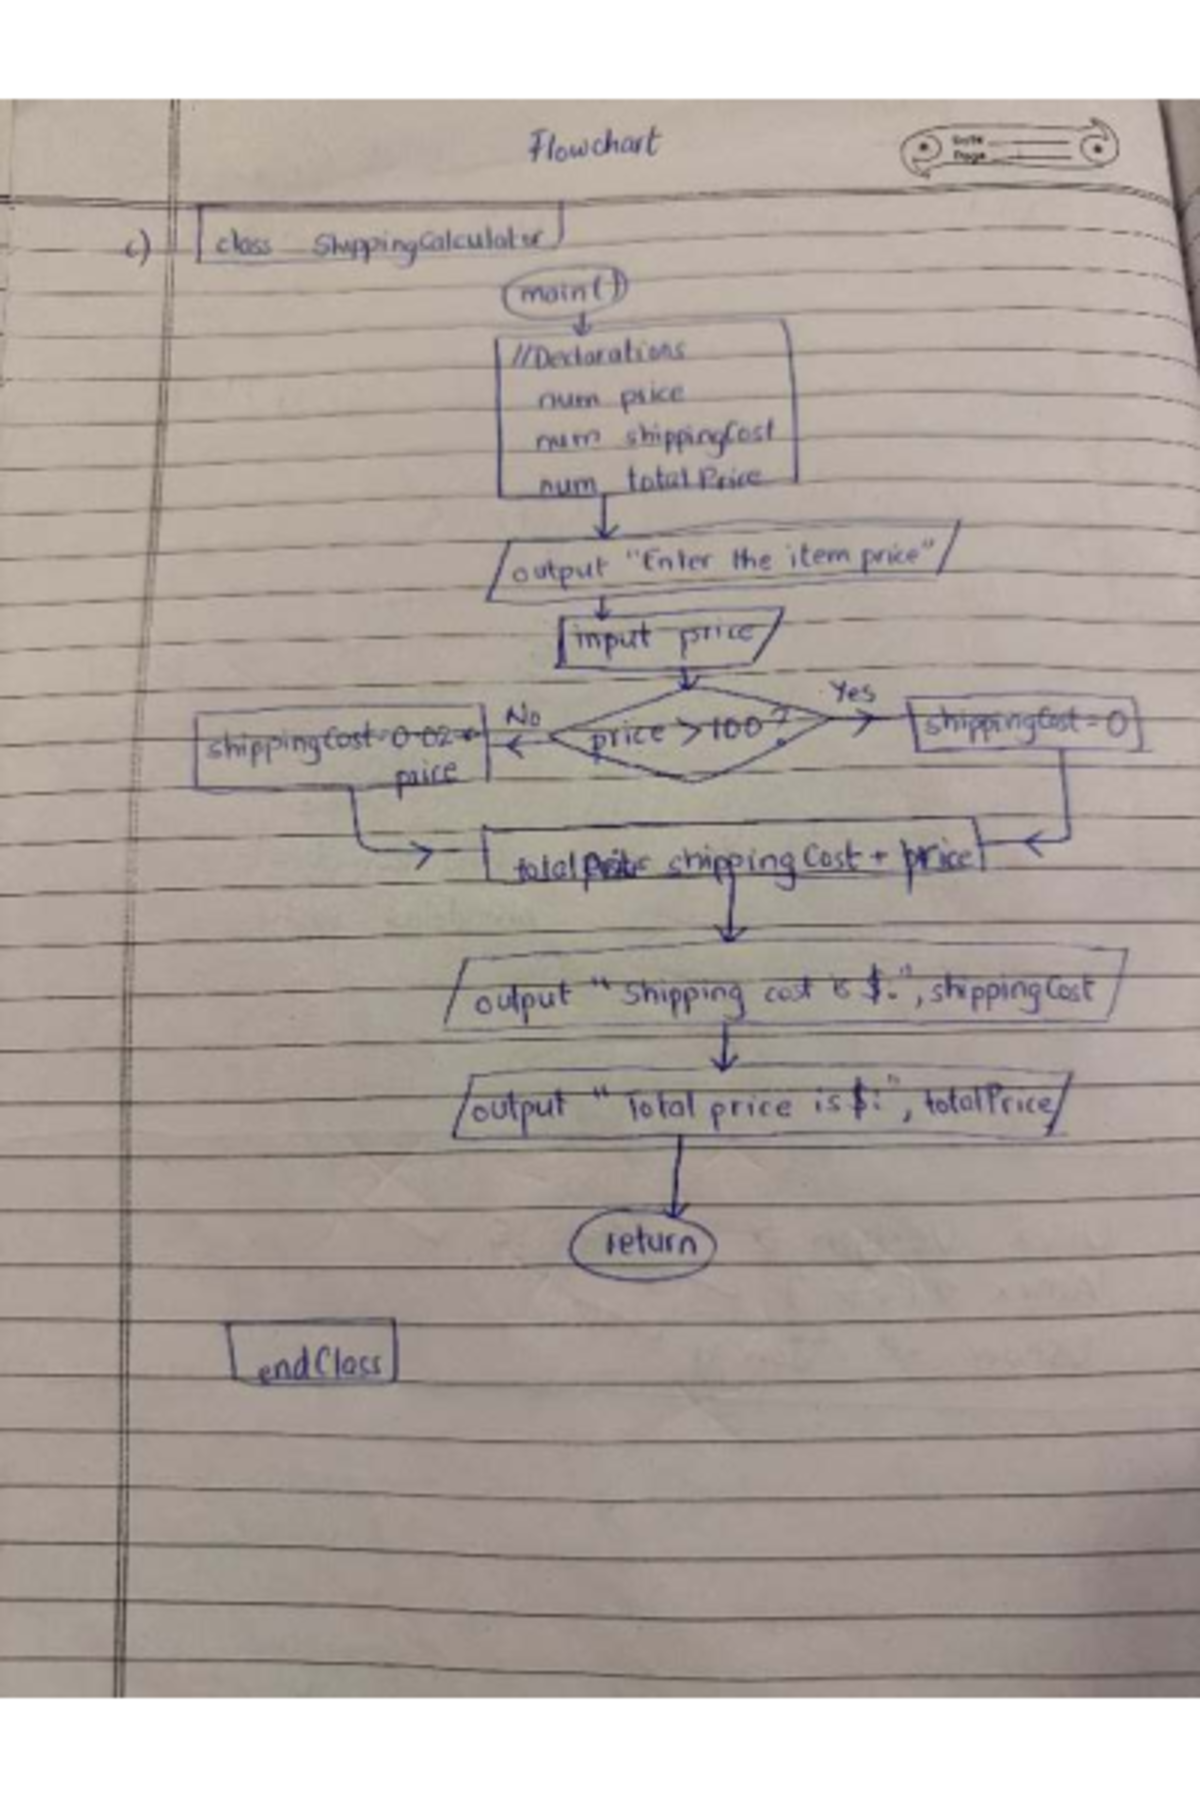 Flowchart
Date
Page
c)
class ShippingCalculator
main()
//Declarations
num price
num shippingCost
num totalPrice
output "Enter the item price"
input price
price > 100?
No
Yes
shippingCost=0.02 *
price
shippingCost=0
shippingCost + price
output "Shipping cost is $:", shippingCost
output "Total price is $:", totalPrice
return
endClass